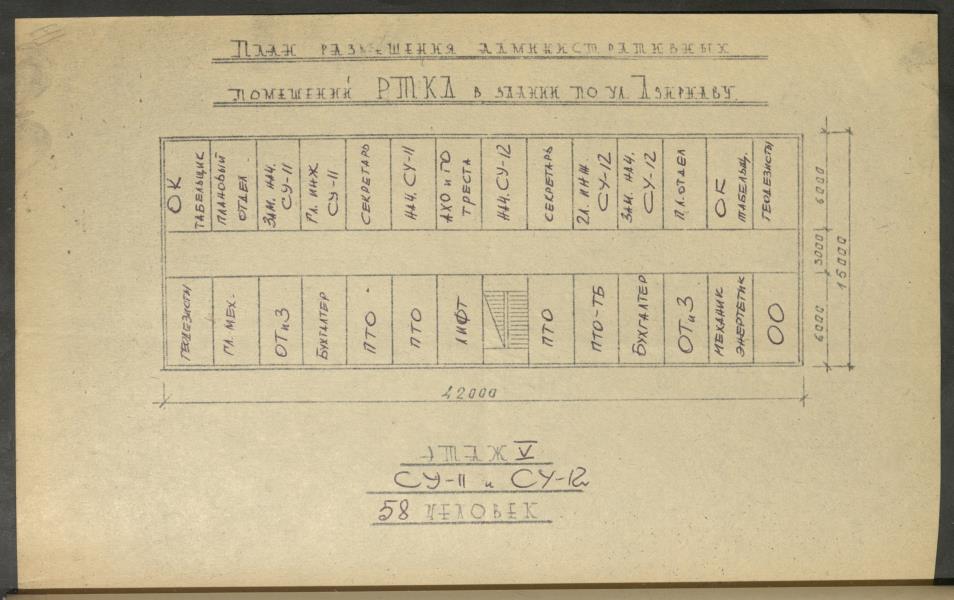 План размещения административных
помещений РТКЛ в здании по ул. Дзирнаву.
ОК
ТАБЕЛЬЩИК
ПЛАНОВЫЙ
ОТДЕЛ
ЗАМ. НАЧ.
СУ-11
ГЛ. ИНЖ
СУ-11
СЕКРЕТАРЬ
НАЧ. СУ-11
АХО и ГО
ТРЕСТА
НАЧ. СУ-12
СЕКРЕТАРЬ
ГЛ. ИНЖ
СУ-12
ЗАМ. НАЧ.
СУ-12
ПЛ. ОТДЕЛ
ОК
ТАБЕЛЬЩ.
ГЕОДЕЗИСТЫ
6000
3000
6000
15000
ГЕОДЕЗИСТЫ
ГЛ. МЕХ.
ОТиЗ
БУХГАЛТЕР
ПТО
ПТО
ЛИФТ
ПТО
ПТО-ТБ
БУХГАЛТЕР
ОТиЗ
МЕХАНИК
ЭНЕРГЕТИК
ОО
42000
ЭТАЖ V
СУ-11 и СУ-12
58 ЧЕЛОВЕК